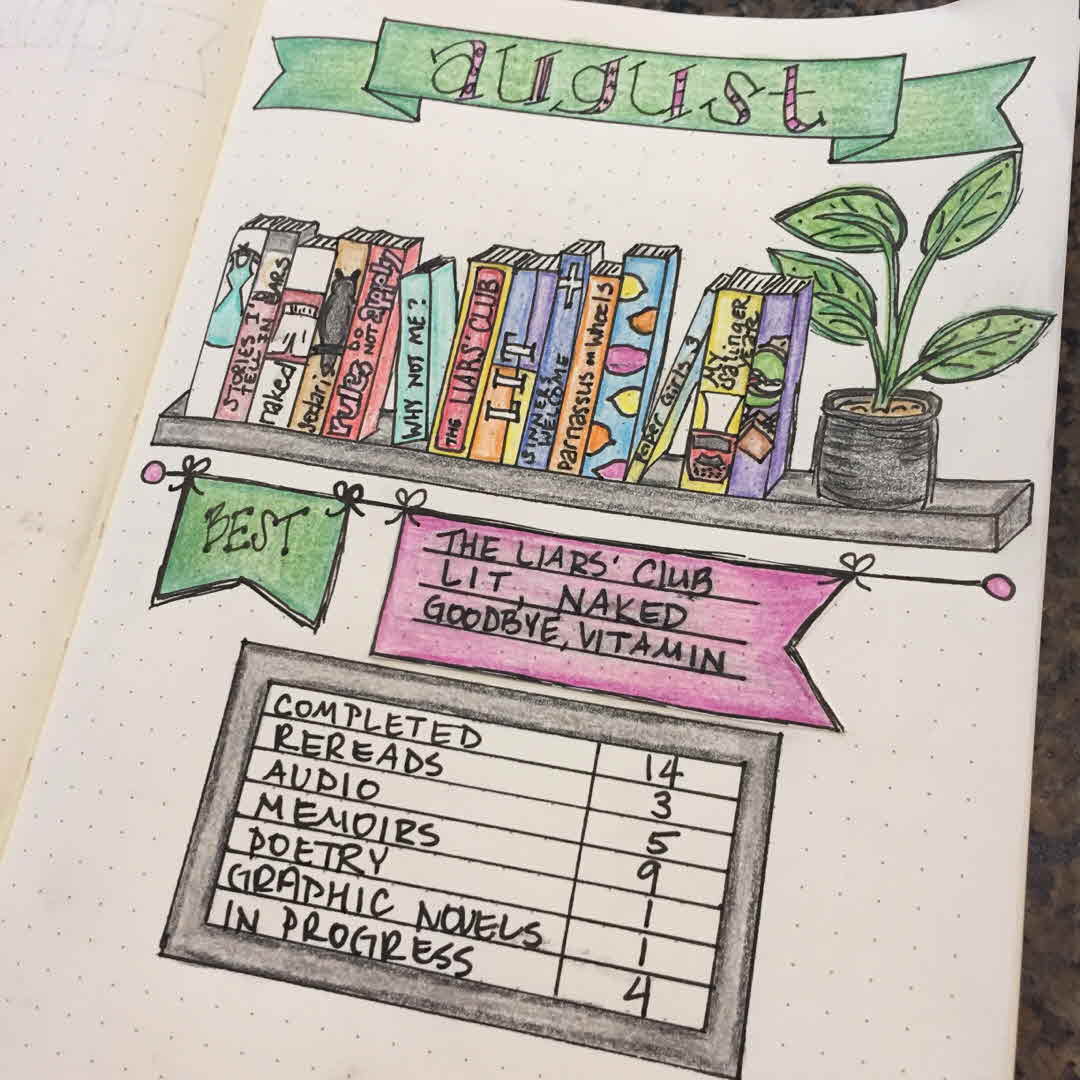 august
STORIES I'
TELL IN BARS
naked
Sedaris
rules do
NOT apply
WHY NOT ME?
THE LIARS' CLUB
LIT
SINNERS
WELCOME
Parnassus on Wheels
Paper Girls 3
MY
Salinger
YEAR
BEST
THE LIARS' CLUB
LIT, NAKED
GOODBYE, VITAMIN
COMPLETED 14
REREADS 3
AUDIO 5
MEMOIRS 9
POETRY 1
GRAPHIC NOVELS 1
IN PROGRESS 4